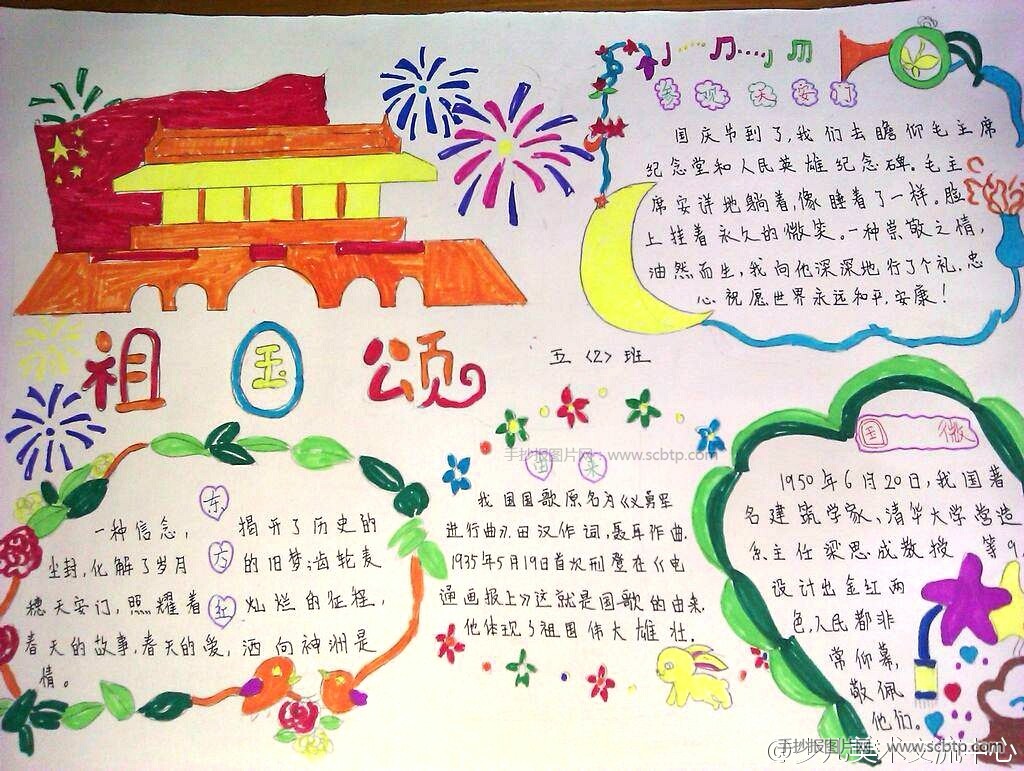 参观天安门
国庆节到了,我们去瞻仰毛主席
纪念堂和人民英雄纪念碑.毛主
席安详地躺着,像睡着了一样。脸
上挂着永久的微笑。一种崇敬之情,
油然而生,我向他深深地行了个礼.忠
心祝愿世界永远和平,安康!
祖国颂
五〈2〉班
东方红
一种信念,揭开了历史的
尘封,化解了岁月的旧梦;齿轮麦
穗天安门,照耀着灿烂的征程,
春天的故事,春天的爱,洒向神洲是
情。
由来
手抄报图片网:www.scbtp.com
我国国歌原名为《义勇军
进行曲》.田汉作词,聂耳作曲.
1935年5月19日首次刑登在《电
通画报上》这就是国歌的由来.
他体现了祖国伟大雄壮.
国微
1950年6月20日,我国著
名建筑学家、清华大学营造
系主任梁思成教授等9
设计出金红两
色,人民都非
常仰幕,
敬佩
他们。
手抄报图片网:www.scbtp.com
@少儿美术交流中心